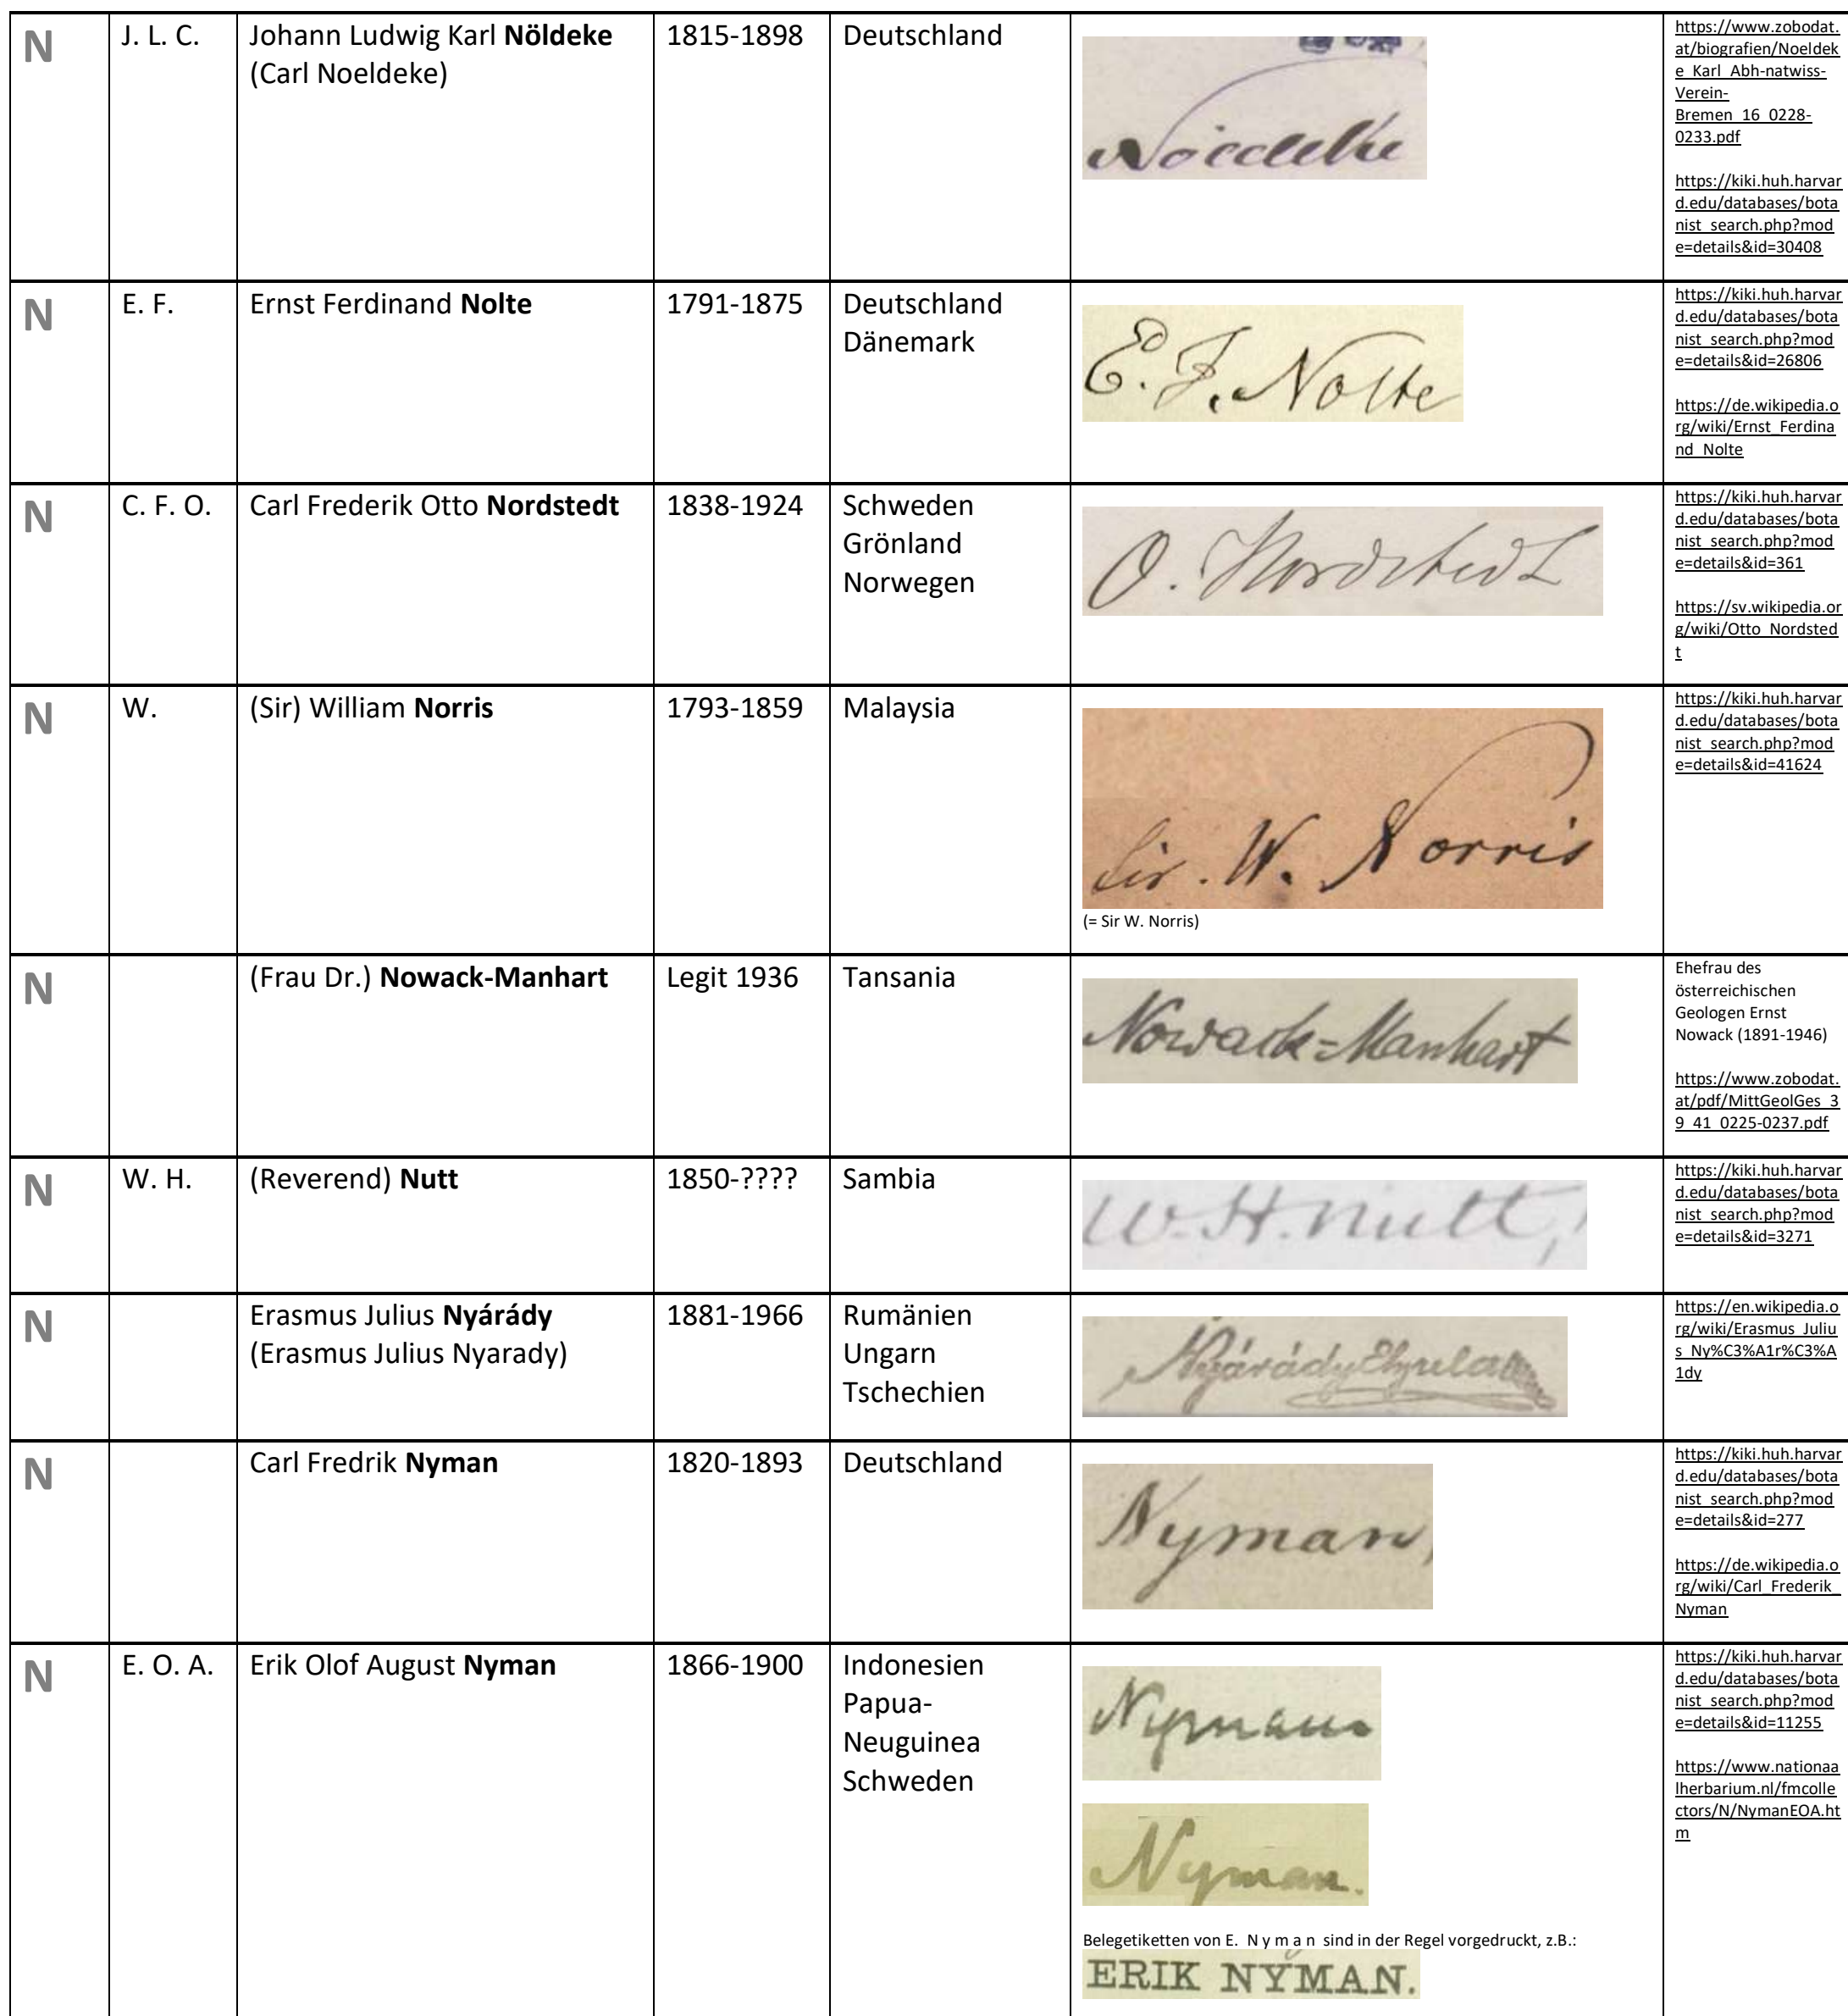 N
J. L. C.
Johann Ludwig Karl Nöldeke
(Carl Noeldeke)
1815-1898
Deutschland
Noeldeke
https://www.zobodat.
at/biografien/Noeldek
e_Karl_Abh-natwiss-
Verein-
Bremen_16_0228-
0233.pdf
https://kiki.huh.harvar
d.edu/databases/bota
nist_search.php?mod
e=details&id=30408
N
E. F.
Ernst Ferdinand Nolte
1791-1875
Deutschland
Dänemark
E. F. Nolte
https://kiki.huh.harvar
d.edu/databases/bota
nist_search.php?mod
e=details&id=26806
https://de.wikipedia.o
rg/wiki/Ernst_Ferdina
nd_Nolte
N
C. F. O.
Carl Frederik Otto Nordstedt
1838-1924
Schweden
Grönland
Norwegen
O. Nordstedt
https://kiki.huh.harvar
d.edu/databases/bota
nist_search.php?mod
e=details&id=361
https://sv.wikipedia.or
g/wiki/Otto_Nordsted
t
N
W.
(Sir) William Norris
1793-1859
Malaysia
Sir. W. Norris
(= Sir W. Norris)
https://kiki.huh.harvar
d.edu/databases/bota
nist_search.php?mod
e=details&id=41624
N
(Frau Dr.) Nowack-Manhart
Legit 1936
Tansania
Nowack-Manhart
Ehefrau des
österreichischen
Geologen Ernst
Nowack (1891-1946)
https://www.zobodat.
at/pdf/MittGeolGes_3
9_41_0225-0237.pdf
N
W. H.
(Reverend) Nutt
1850-????
Sambia
W. H. Nutt,
https://kiki.huh.harvar
d.edu/databases/bota
nist_search.php?mod
e=details&id=3271
N
Erasmus Julius Nyárády
(Erasmus Julius Nyarady)
1881-1966
Rumänien
Ungarn
Tschechien
Nyárády
https://en.wikipedia.o
rg/wiki/Erasmus_Juliu
s_Ny%C3%A1r%C3%A
1dy
N
Carl Fredrik Nyman
1820-1893
Deutschland
Nyman
https://kiki.huh.harvar
d.edu/databases/bota
nist_search.php?mod
e=details&id=277
https://de.wikipedia.o
rg/wiki/Carl_Frederik_
Nyman
N
E. O. A.
Erik Olof August Nyman
1866-1900
Indonesien
Papua-
Neuguinea
Schweden
Nyman
Nyman.
Belegetiketten von E. N y m a n sind in der Regel vorgedruckt, z.B.:
ERIK NYMAN.
https://kiki.huh.harvar
d.edu/databases/bota
nist_search.php?mod
e=details&id=11255
https://www.nationaa
lherbarium.nl/fmcolle
ctors/N/NymanEOA.ht
m